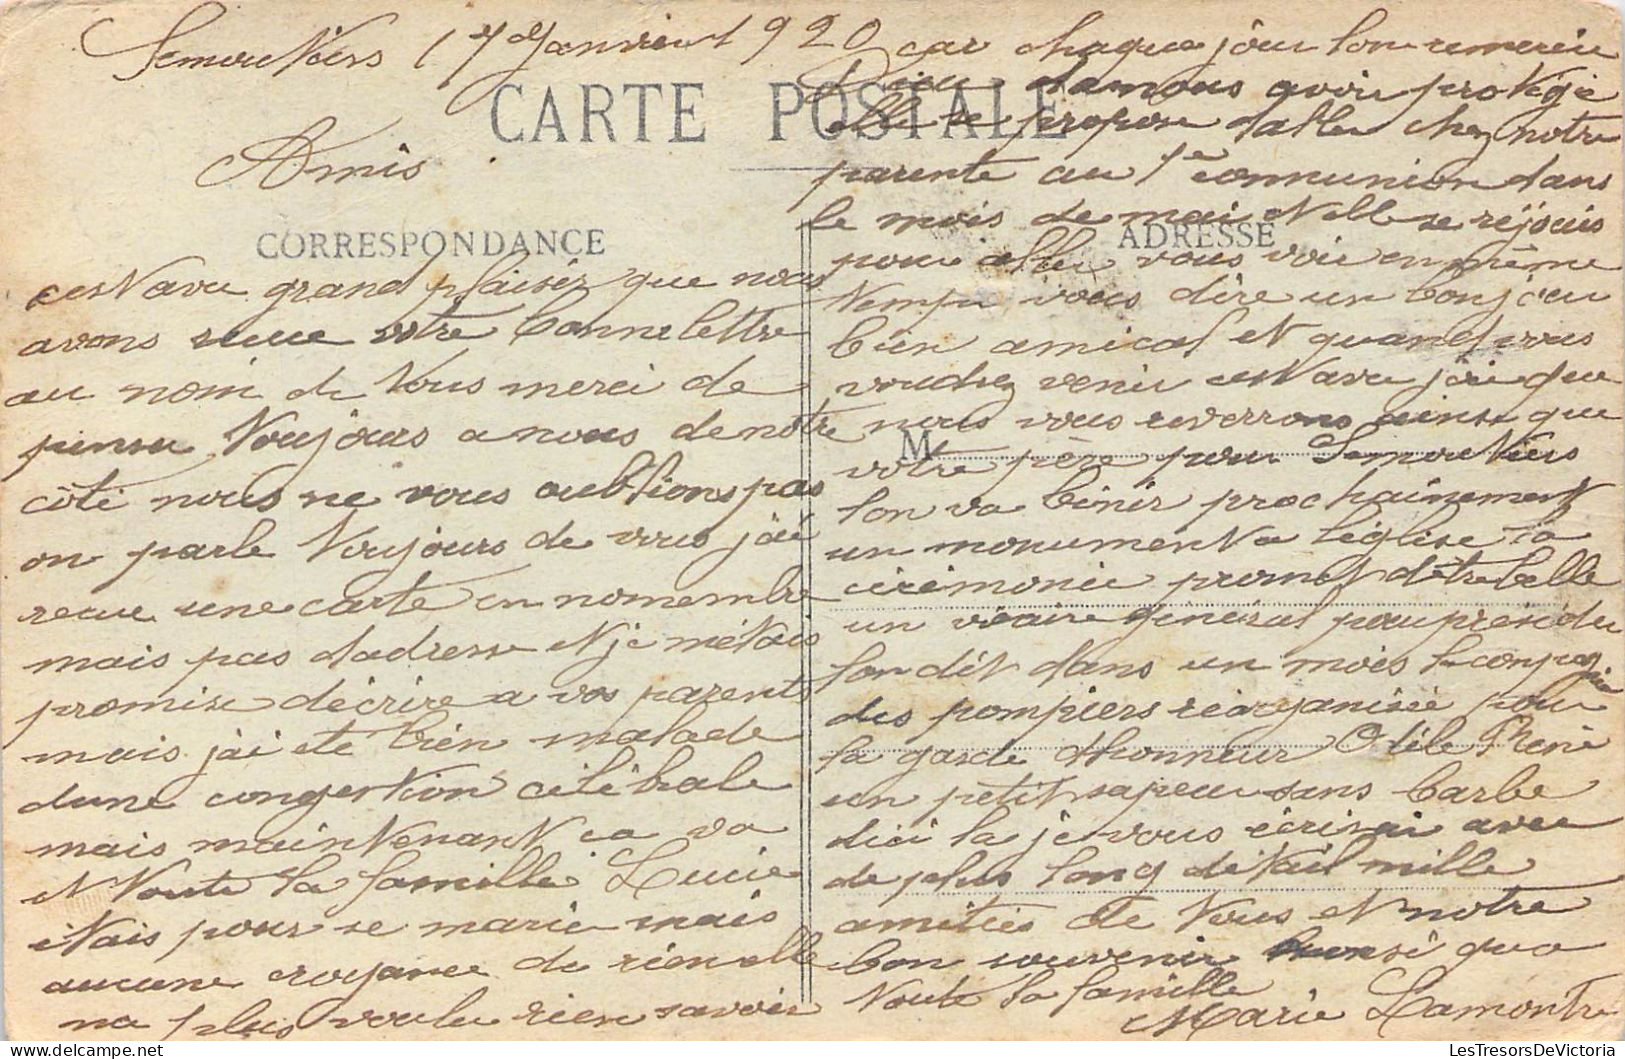 Semoutiers 17 Janvier 1920
CARTE POSTALE
Amis
CORRESPONDANCE
cest avec grand plaisir que nous
avons recue votre bonne lettre
au nom de tous merci de
penser toujours a nous de notre
côté nous ne vous oublions pas
on parle toujours de vous j'ai
recue une carte en novembre
mais pas dadresse et je métais
promise décrire a vos parents
mais j'ai ete bien malade
dune congestion cérébrale
mais maintenant ca va
et toute la famille Lucie
étais pour se marié mais
aucune croyance de rien elle
na plus voulu rien savoir
car chaque jour lon remercie
Dieu damous avoir protégé
elle se propose daller chez notre
parente au 1re communion dans
le mois de mai et elle se réjouis
ADRESSE
pour aller vous voir en même
temps vous dire un bonjour
bien amical et quand vous
voudrez venir cest avec joie que
nous vous reverrons ainsi que
M
votre père pour Semoutiers
lon va bénir prochainement
un monument a léglise la
cérémonie promet dêtre belle
un vicaire général pour présider
lon dit dans un mois la compagnie
des pompiers réorganisée pour
la garde dhonneur Otile René
un petit sapeur sans barbe
dici la je vous écrirai avec
de plus long détail mille
amitiés de tous et notre
bon souvenir ainsi qua
toute la famille
Marie Lamontre
LesTresorsDeVictoria